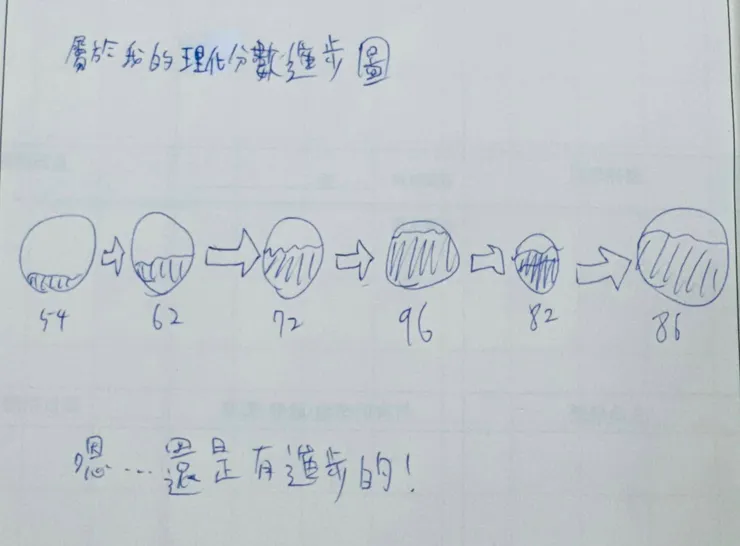 屬於我的理化分數進步圖
54 62 72 96 82 86
嗯...還是有進步的!